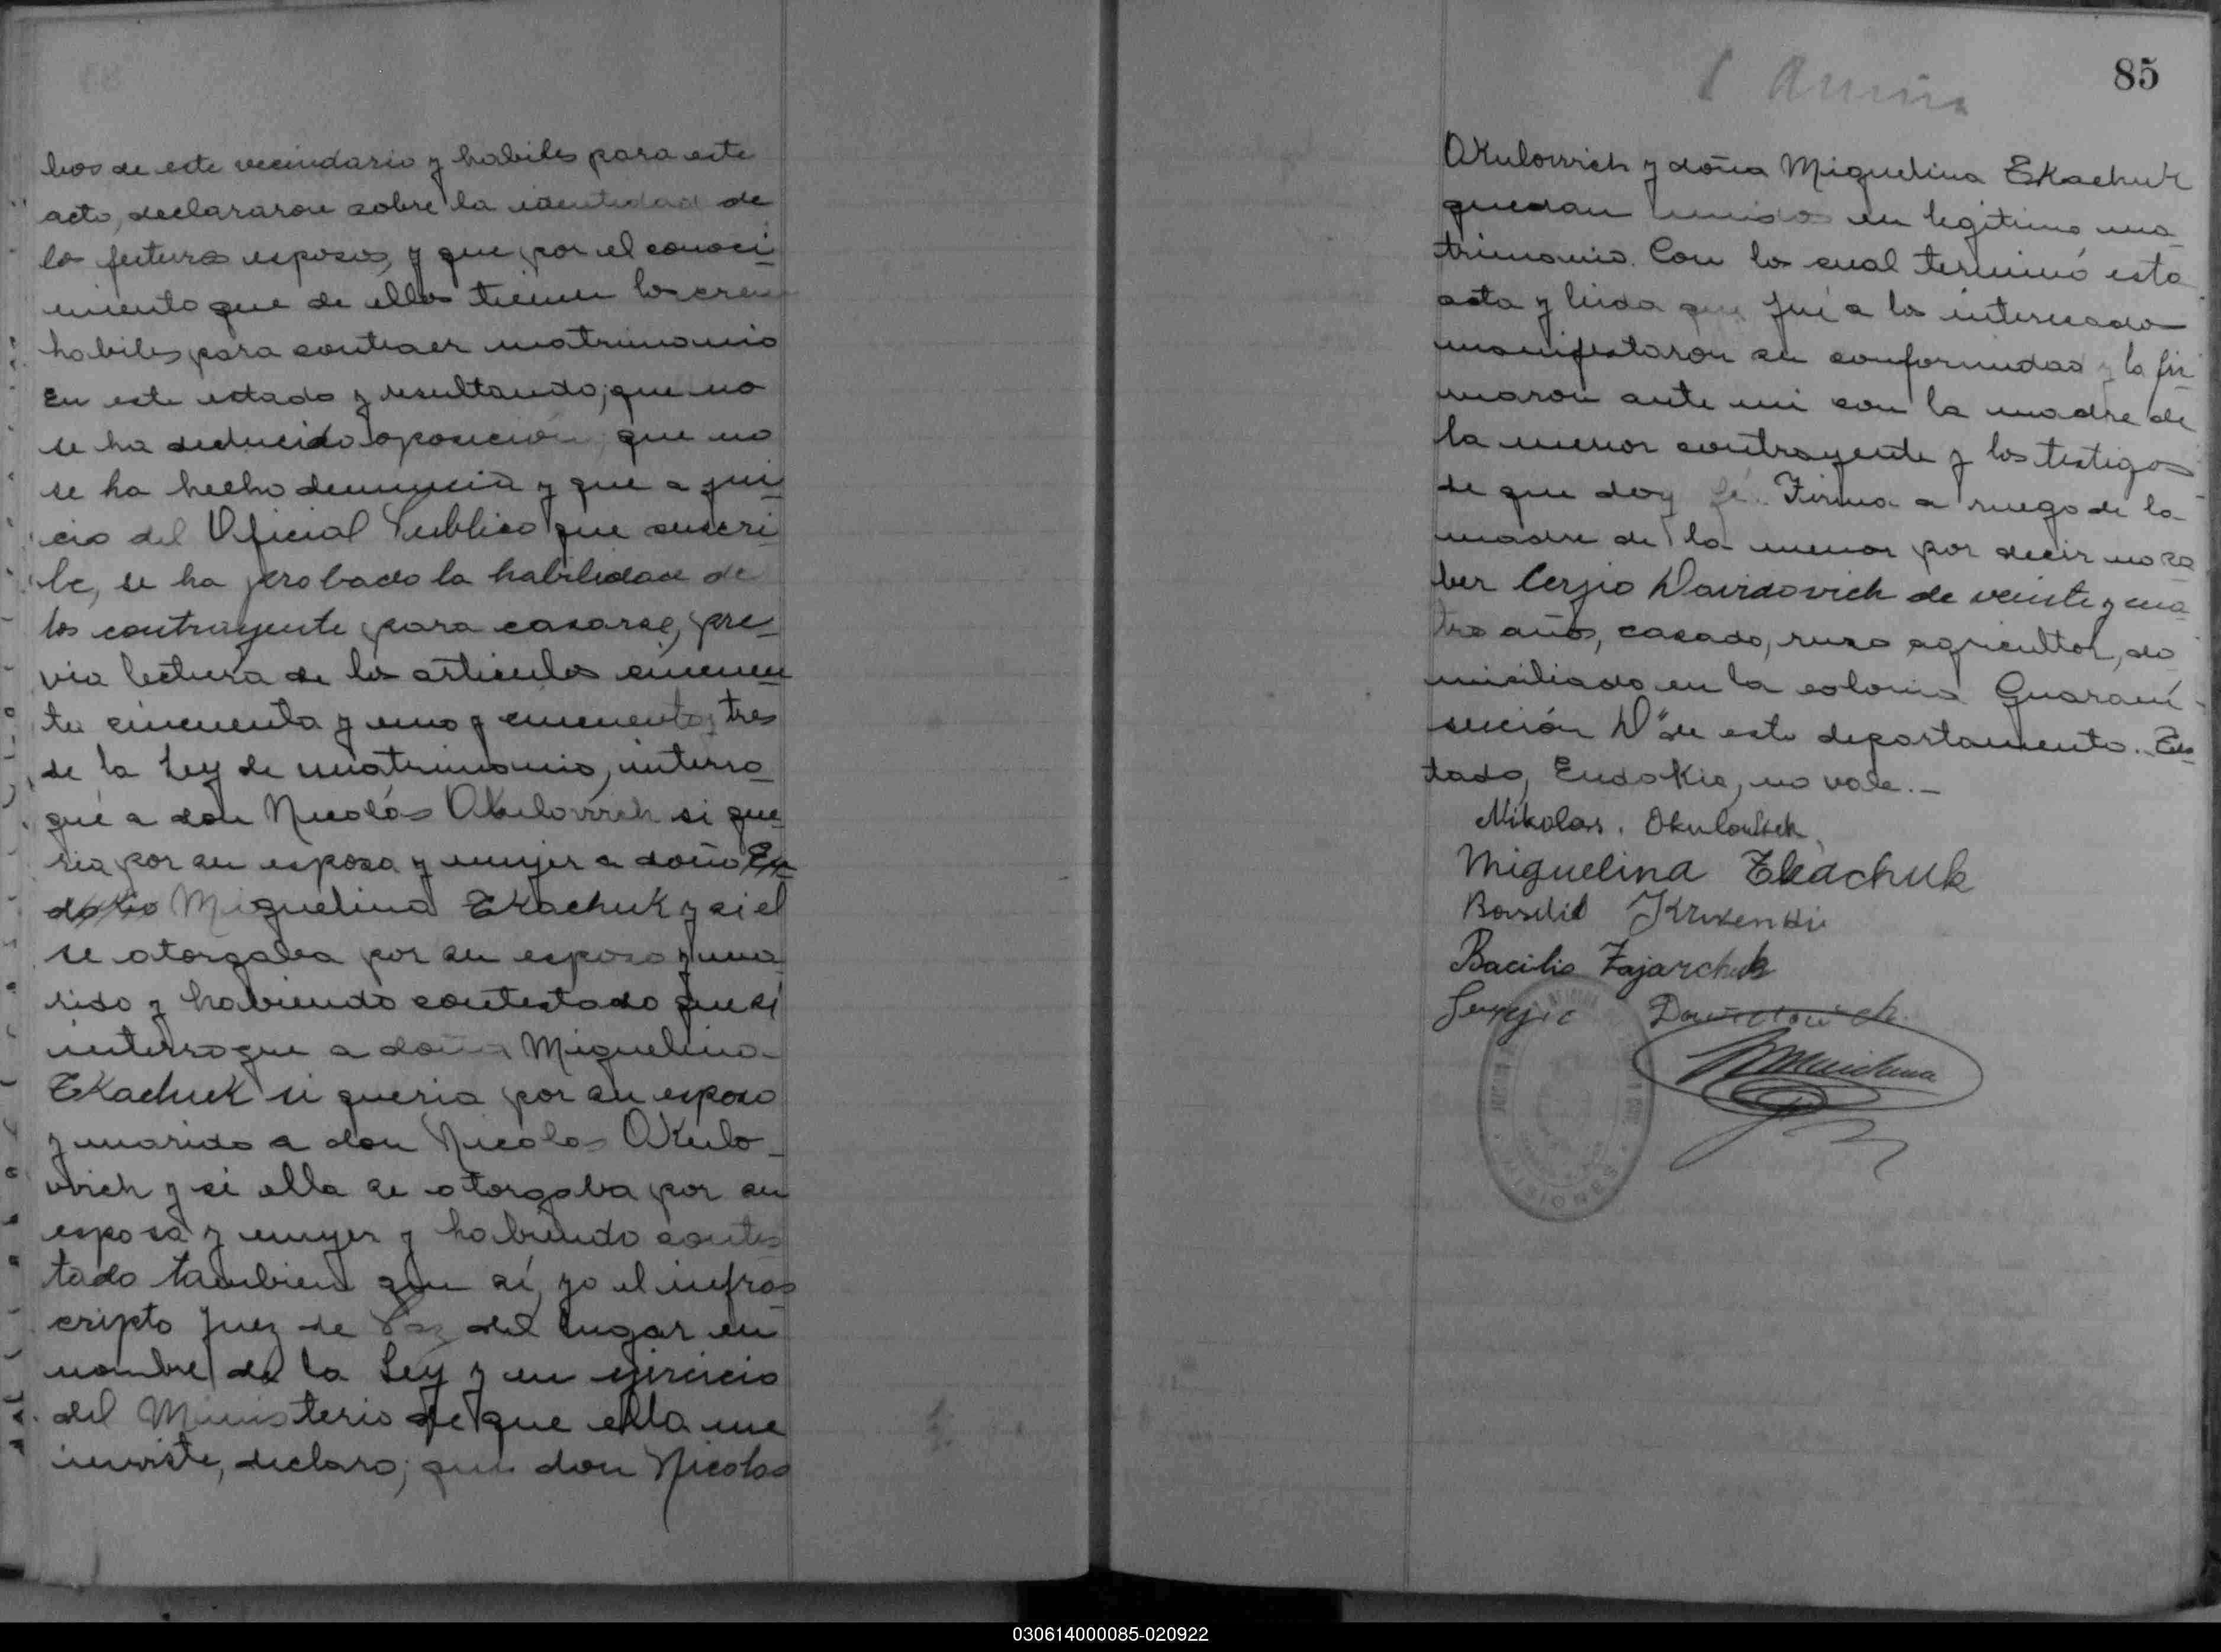 bos de este vecindario y habiles para este
acto, declararon sobre la identidad de
los futuros esposos, y que por el conoci-
miento que de ellos tienen los creen
habiles para contraer matrimonio
En este estado y resultando; que no
se ha deducido oposición; que no
se ha hecho denuncia y que a jui-
cio del Oficial Publico que suscri-
be, se ha probado la habilidad de
los contrayente para casarse, pre-
via lectura de los articulos cincuen
ta cincuenta y uno y cincuenta y tres
de la Ley de matrimonio, interro-
gué a don Nicolás Okulovich si que-
ria por su esposa y mujer a doña Eu
dokia Miguelina Zkachuk y si el
se otorgaba por su esposo y ma-
rido y habiendo contestado que sí
interrogue a doña Miguelina
Zkachuk si queria por su esposo
y marido a don Nicolas Okulo-
vich y si ella se otorgaba por su
esposa y mujer y habiendo contes
tado tambien que sí, yo el infras-
cripto Juez de Paz del lugar en
nombre de la Ley y en ejercicio
del Ministerio de que ella me
inviste, declaro; que don Nicolas
85
Okulovich y doña Miguelina Zkachuk
quedan unidos en legitimo ma-
trimonio. Con lo cual terminó esta
acta y leida que fué a los interesados
manifestaron su conformidad y la fir-
maron ante mi con la madre de
la menor contrayente y los testigos
de que doy fé. Firma a ruego de la
madre de la menor por decir no sa-
ber Cergio Davidovich de veinte y cua
tro años, casado, ruso agricultor, do
miciliado en la colonia Guaraní
sección D" de este departamento. Tes-
tado, Eudokia, no vale.-
Nikolas. Okulowich
Miguelina Zkachuk
Basilio
Bacilio Zajarchuk
Sergio Davidovich.
MISIONES
030614000085-020922